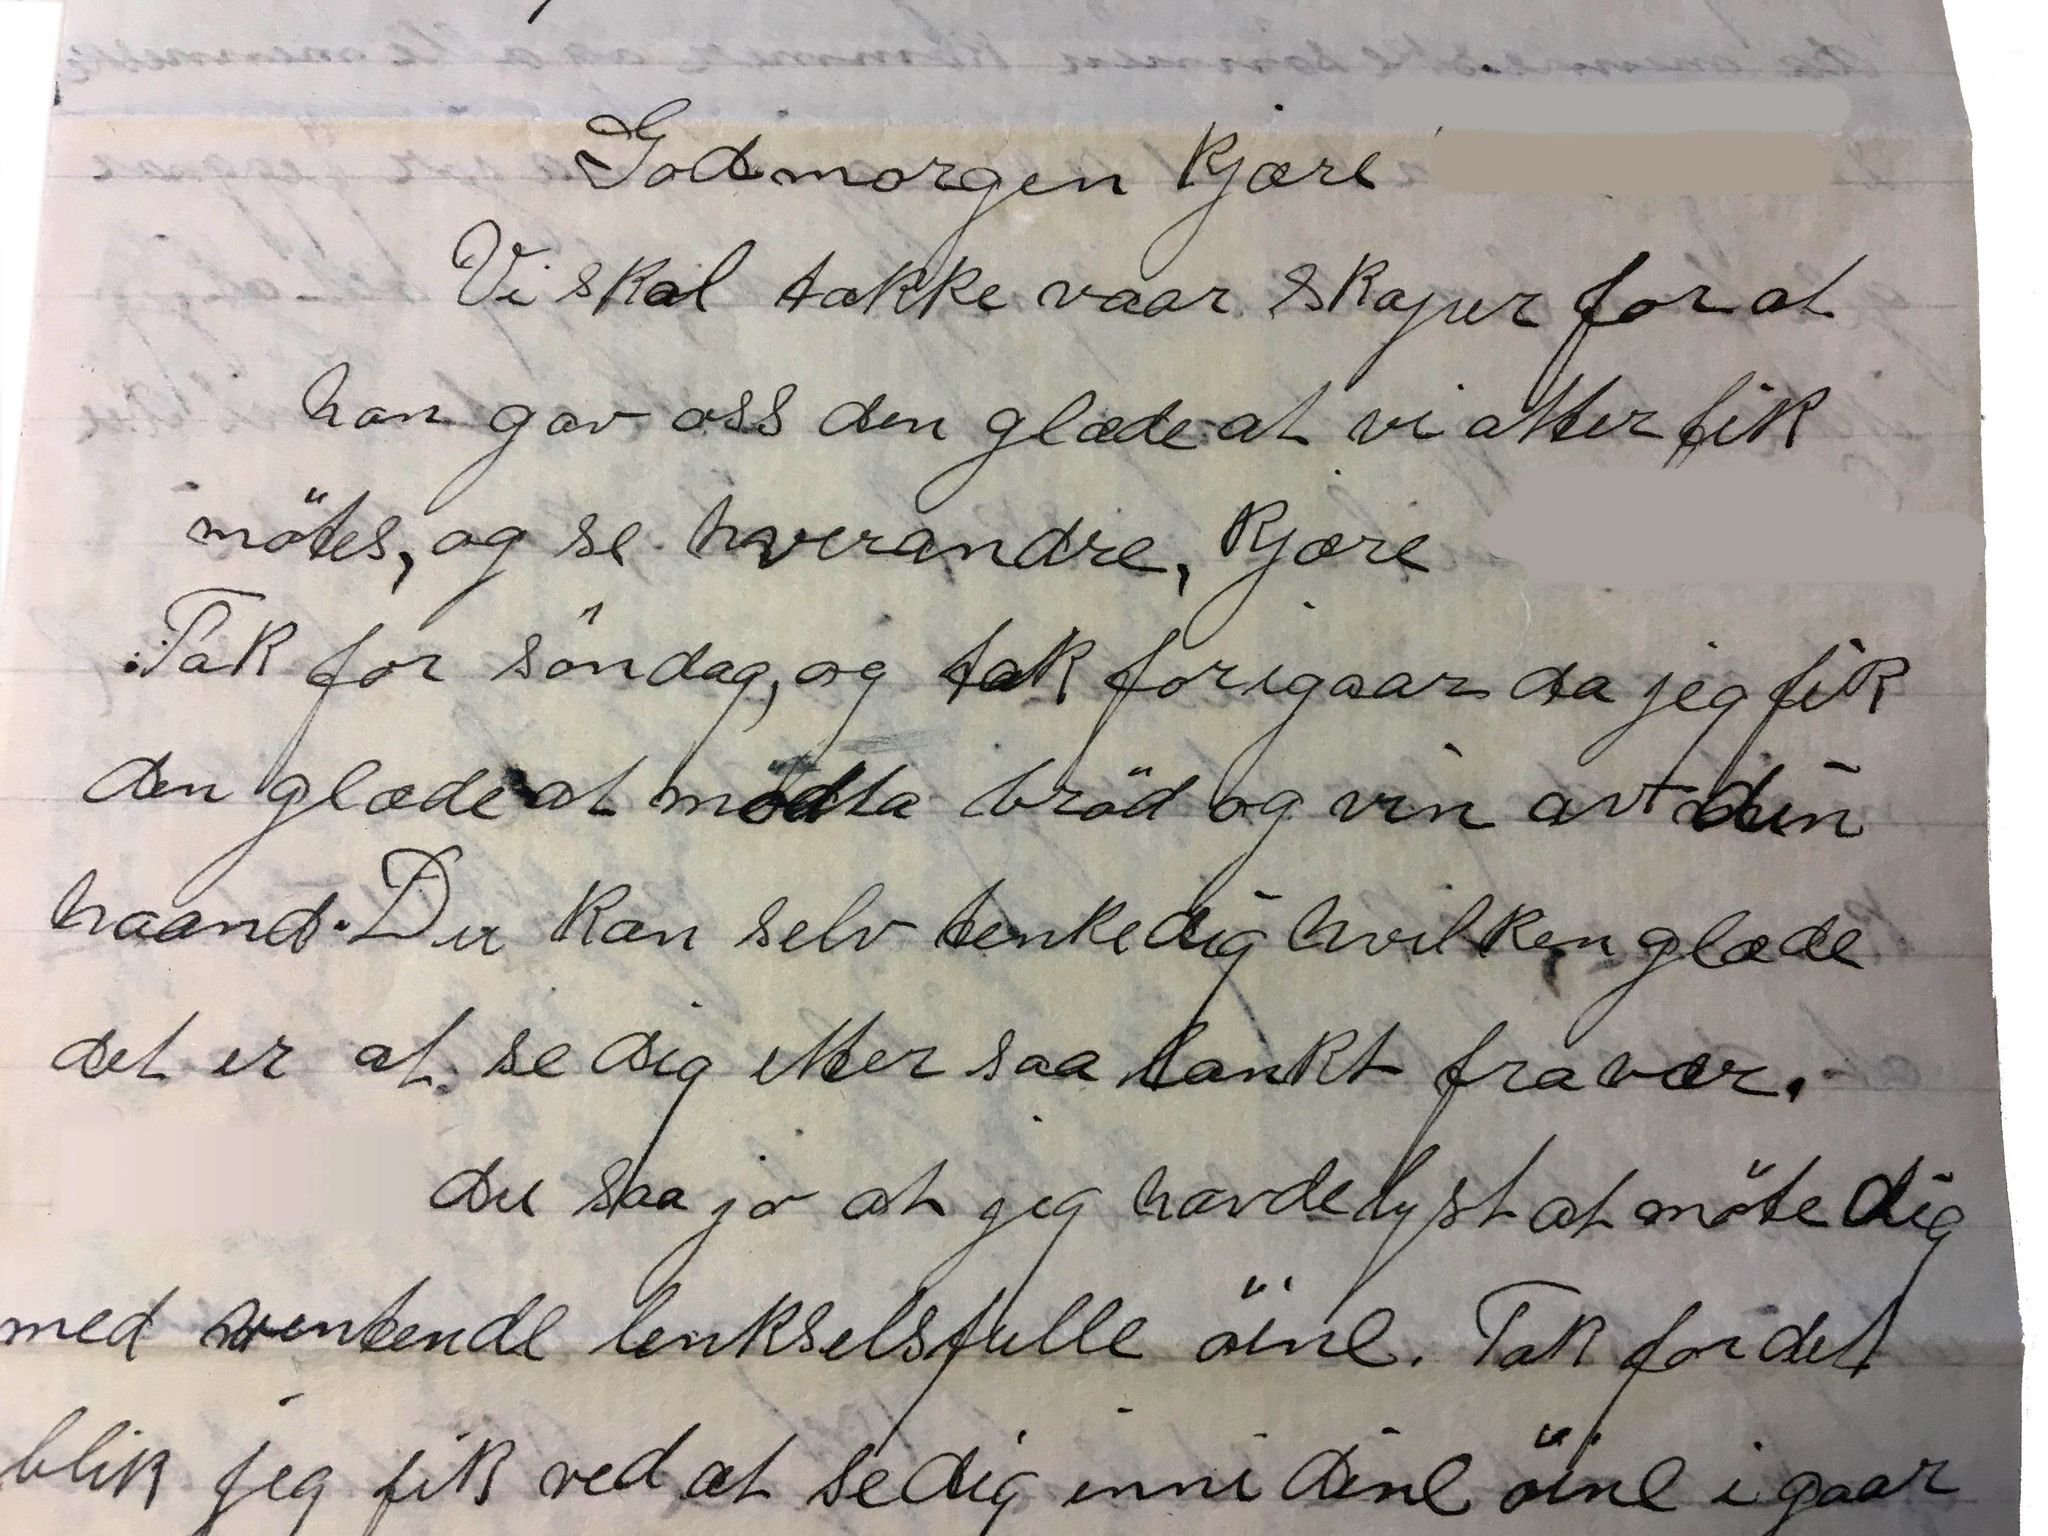 Godmorgen Kjære
Vi skal takke vaar skaper for at
han gav oss den glæde at vi atter fik
mötes, og se hverandre, Kjære
Tak for söndag, og tak for igaar da jeg fik
den glæde at modta bröd og vin avt din
haand. Du kan selv tenke dig hvilken glæde
det er at se dig etter saa lankt fravær.
du saa jo at jeg havde lyst at möte dig
med ventende lenkselsfulle öine. Tak for det
blik jeg fik ved at se dig inni dine öine i gaar